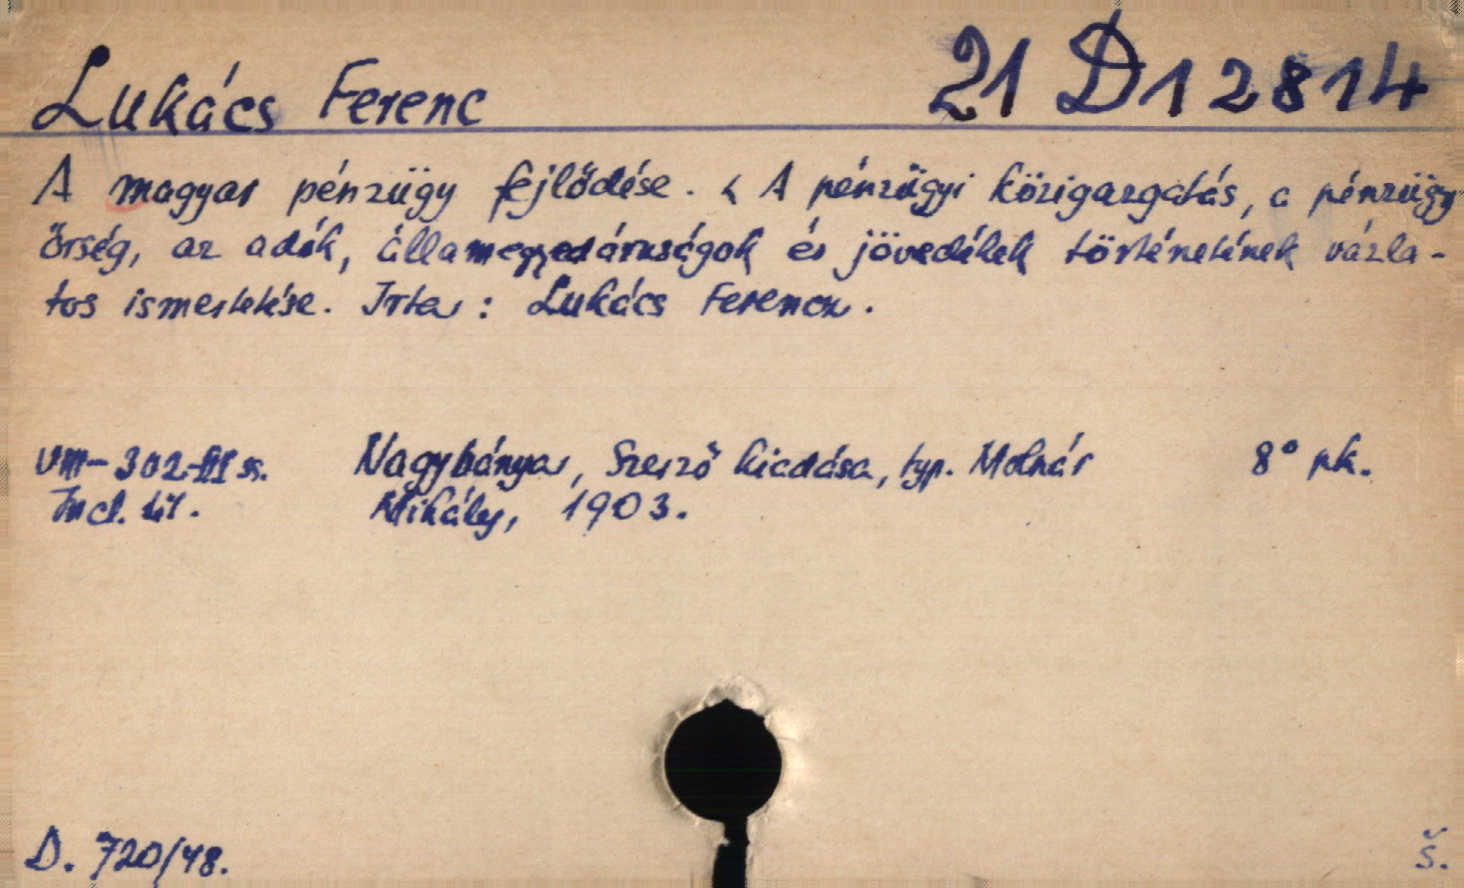 Lukács Ferenc 21 D 12814
A magyar pénzügy fejlődése. < A pénzügyi közigazgatás, a pénzügy
őrség, az adók, államegyedáruságok és jövedékek történetének vázla-
tos ismertetése. Irta: Lukács Ferencz.
VIII-302-III ss. Nagybánya, Szerző kiadása, typ. Molnár 8° pk.
Inct. tit. Mihály, 1903.
D. 720/48. š.